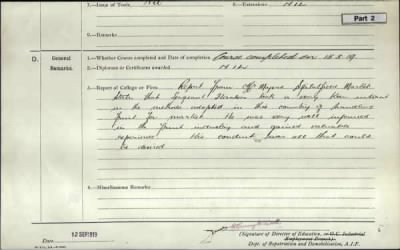 7.—Issue of Tools Nil
8.—Extensions Nil
Part 2
9.—Remarks
D.
General Remarks.
1.—Whether Course completed and Date of completion. Course completed on 18.8.19
2.—Diplomas or Certificates awarded. Nil
3.—Report of College or Firm. Report from Spitalfields Market
state that Sergeant took a very keen interest
in the methods adopted in this country of handling
fruit for market. He was very well informed
in the fruit industry and gained valuable
experience. His conduct was all that could
be desired
4.—Miscellaneous Remarks
12 SEP 1919
(Signature of Director of Education, or O.C. Industrial
Employment Branch)
Dept. of Repatriation and Demobilisation, A.I.F.